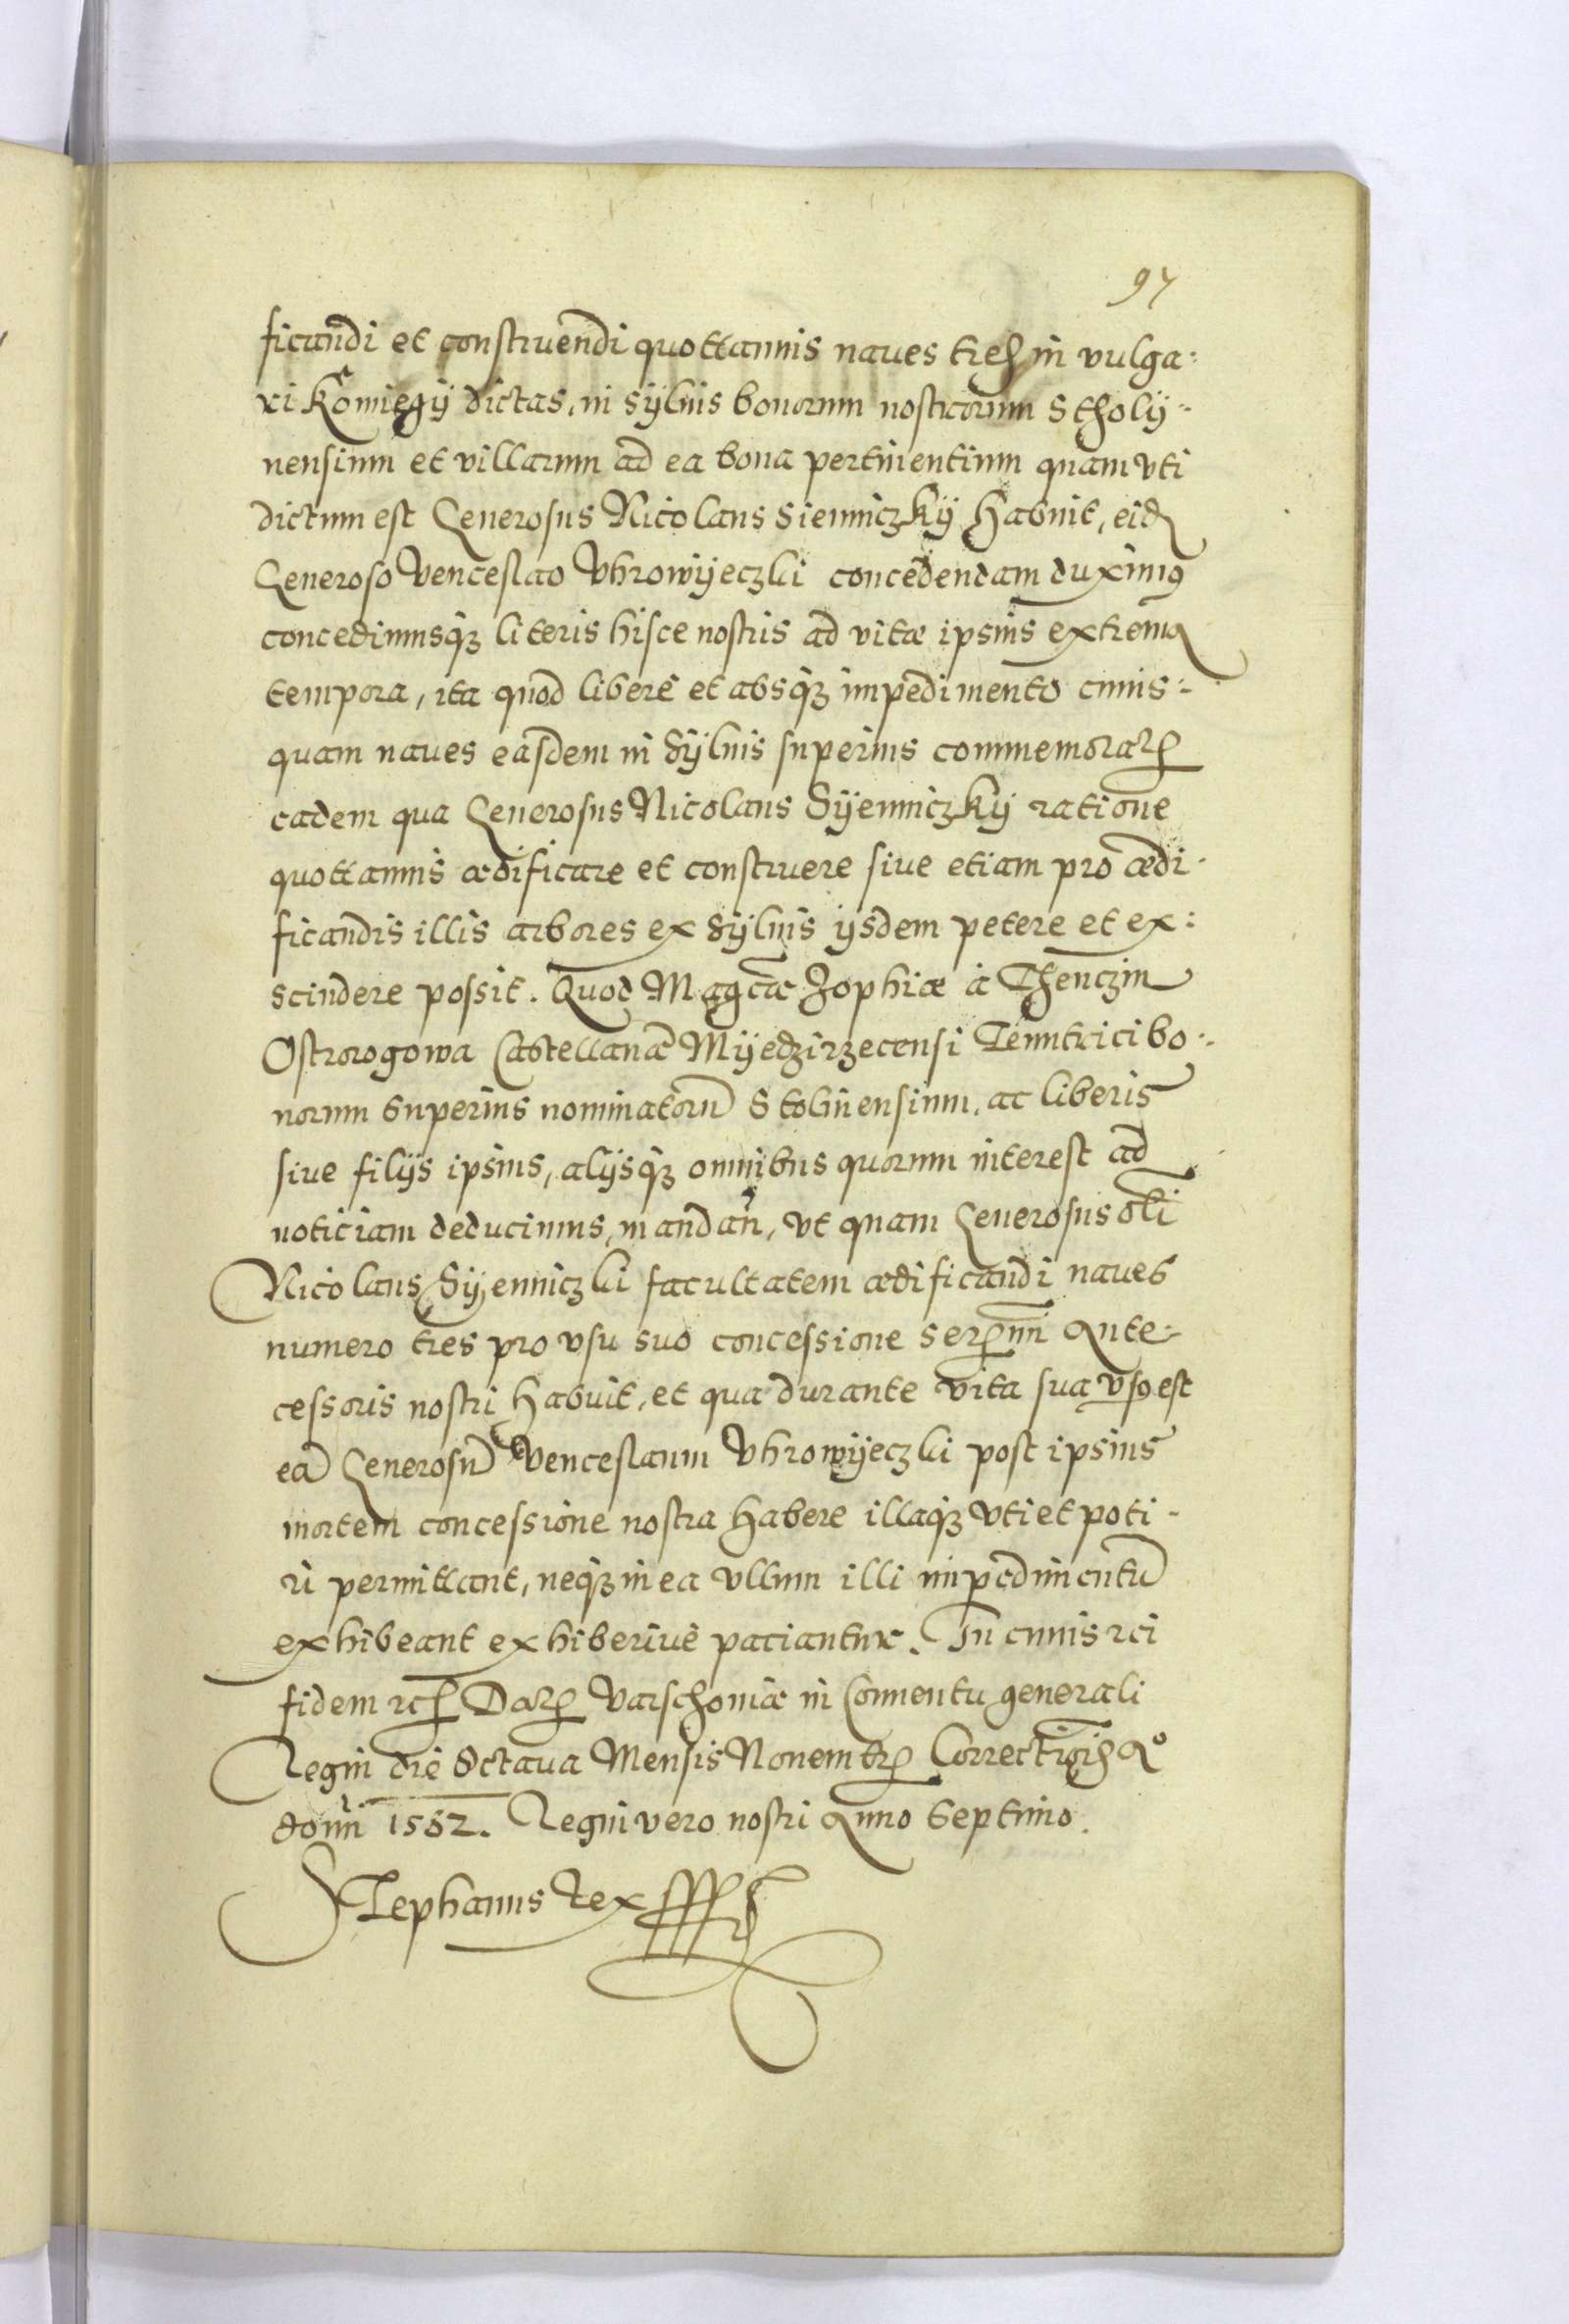 97
ficandi et construendi quottannis naues tres in vulga:
ri Komięgÿ dictas, in sÿluis bonorum nostrorum Stholÿ-
nensium et villarum ad ea bona pertinentium quam vti
dictum est Generosus Nicolaus Sienniczkÿ habuit, eidē
Generoso Venceslao Vhrowÿeczki concedendam duximus
concedimusq3 literis hisce nostris ad vitæ ipsius extrema
tempora, ita quod liberè et absq3 impedimento cuius-
quam naues easdem in sÿluis superius commemorat
eadem qua Generosus Nicolaus Sÿenniczkÿ ratione
quottannis ædificare et construere siue etiam pro ædi-
ficandis illis arbores ex sÿluis ÿsdem petere et ex:
scindere possit. Quod Magcæ Zophiæ à Thenczin
Ostrorogowa Castellanæ Mÿedzirzecensi Tenutrici bo-
norum superius nominatorū Stolinensium, ac liberis
siue filÿs ipsius, alÿsq3 omnibus quorum interest ad
noticiam deducimus, mandan, vt quam Generosus oli
Nicolaus Sÿenniczki facultatem ædificandi naues
numero tres pro vsu suo concessione Sermi Ante-
cessoris nostri habuit, et qua durante vita sua vsus est
eā Generosū Venceslaum Vhrowÿeczki post ipsius
mortem concessione nostra habere illaq3 vti et poti-
ri permittant, neq3 in ea vllum illi impedimentū
exhibeant exhiberiuè patiantur. In cuius rei
fidem etc Dat Varschouiæ in Conuentu generali
Regni die Octaua Mensis Nouembr Correctionis Ao
domi 1582. Regni vero nostri Anno Septimo.
Stephanus Rex